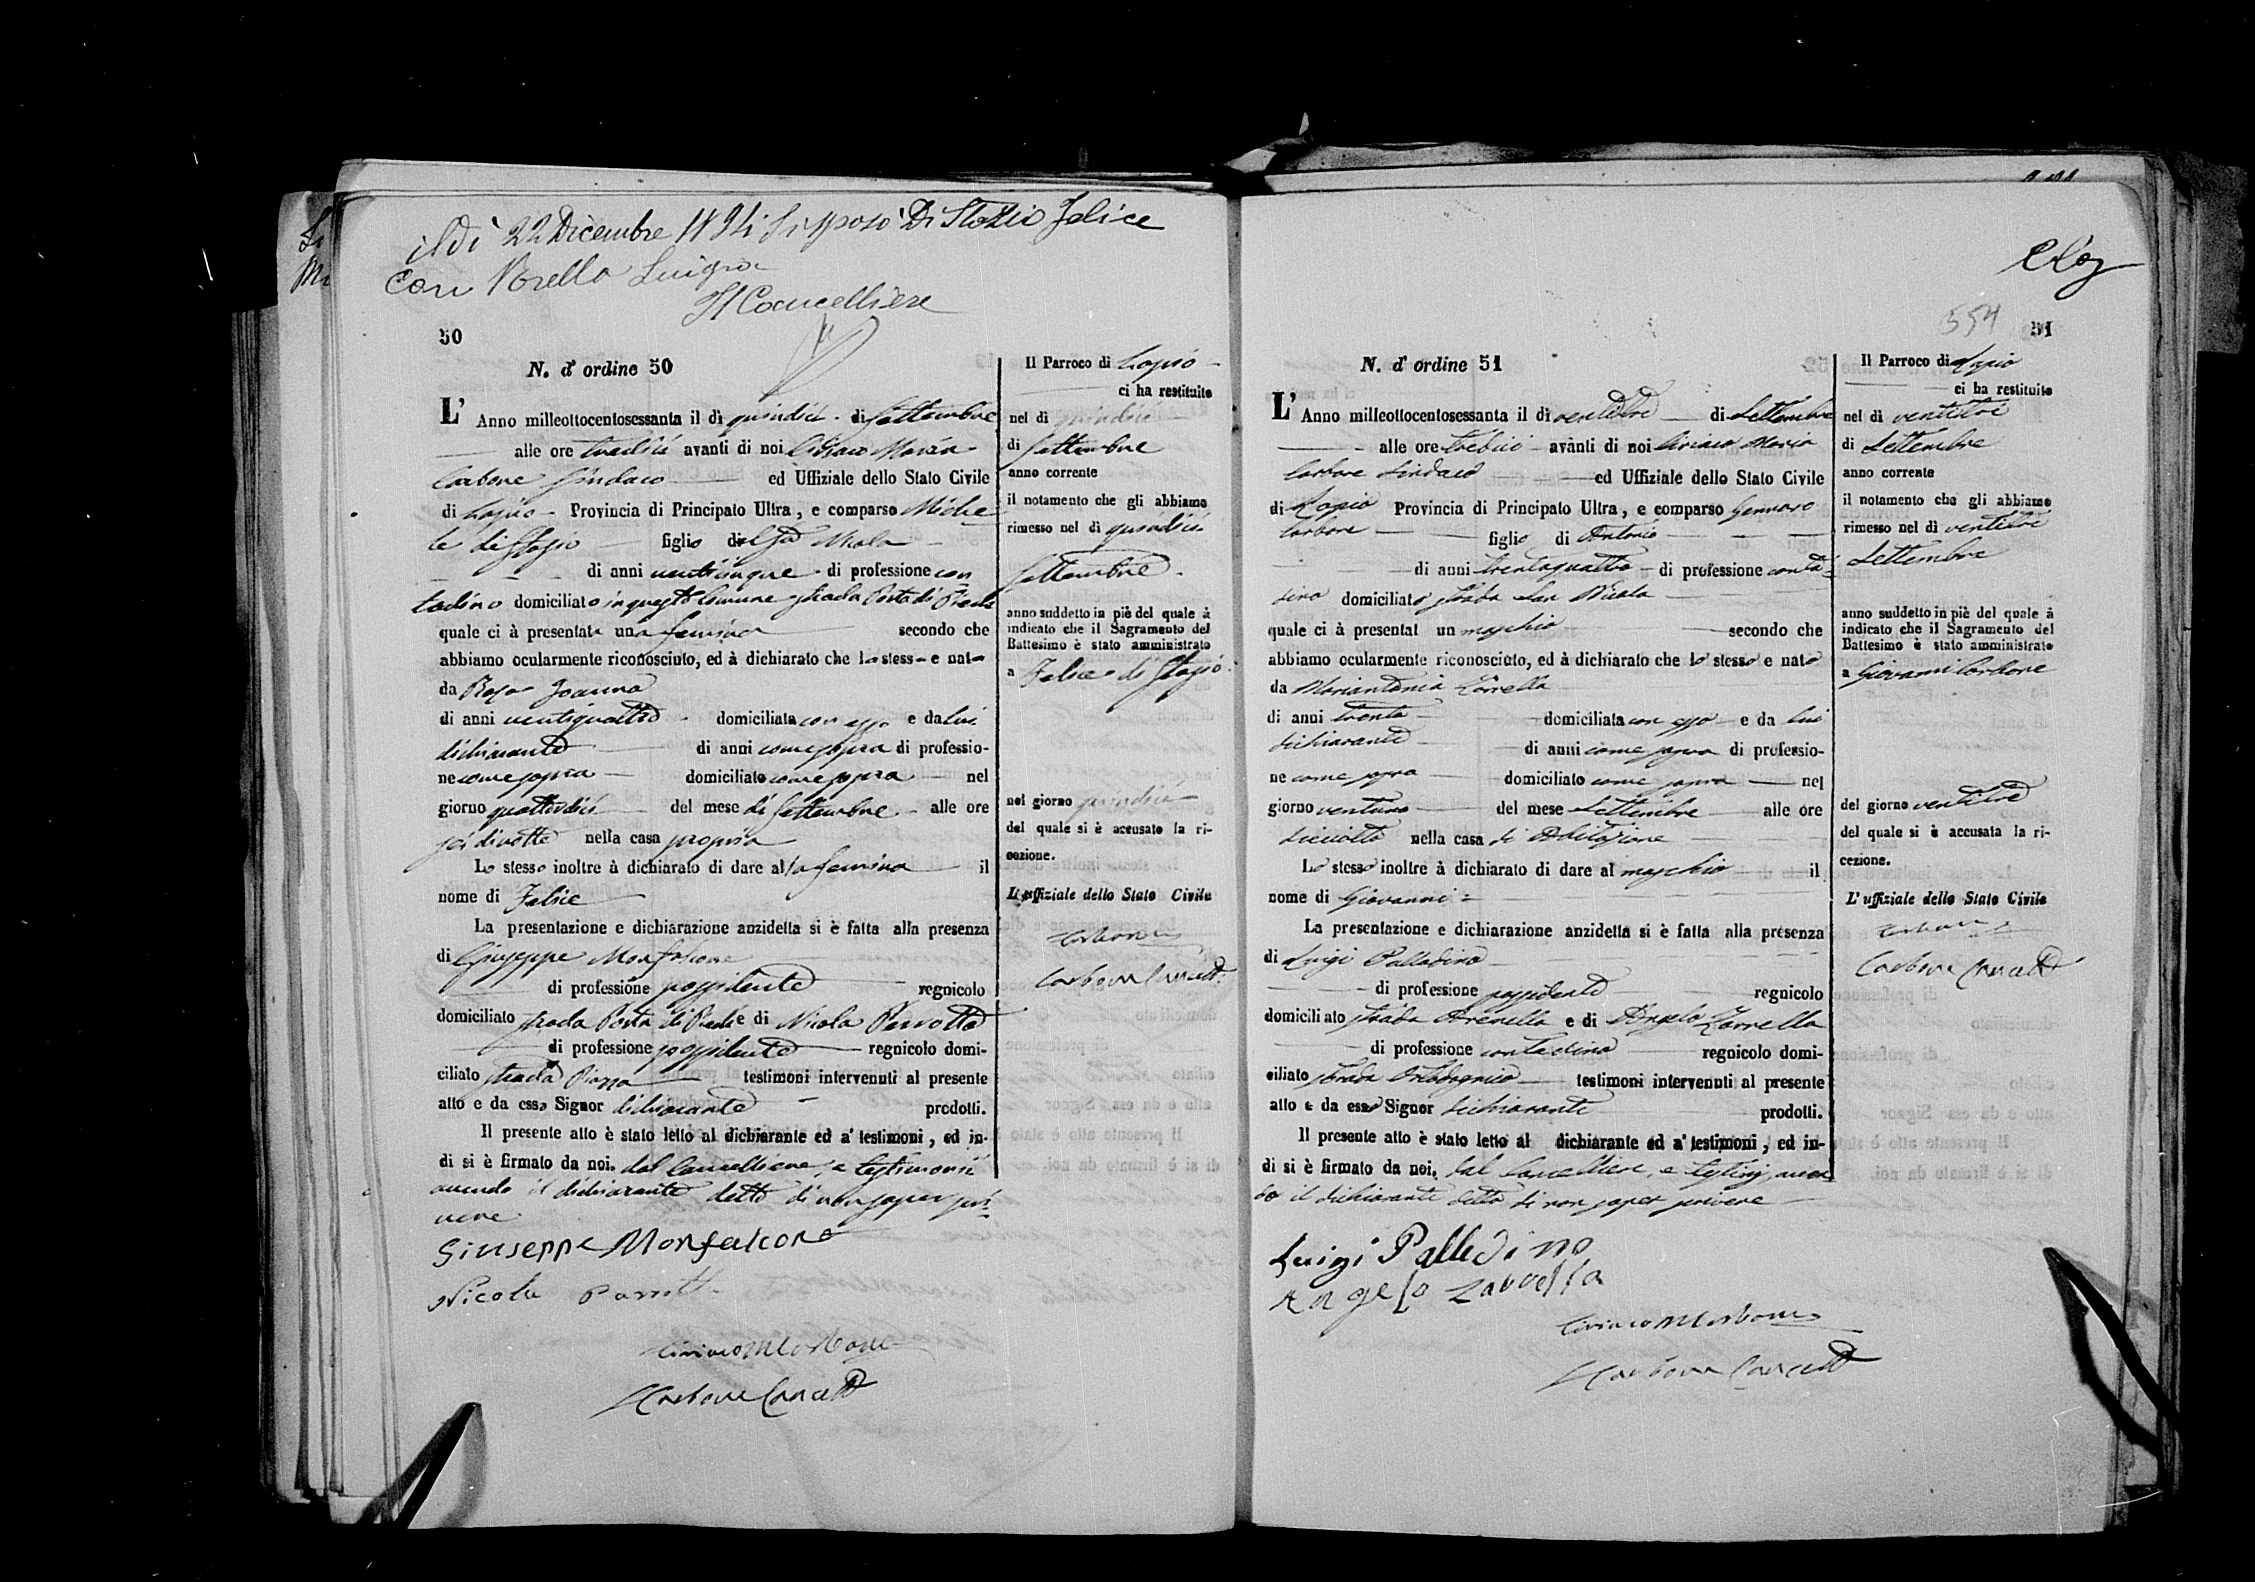 il dì 22 Dicembre 1894 si sposò Di Stasio Felice
con Luigia
Il Cancelliere
50
N. d' ordine 50
L' Anno milleottocentosessanta il dì quindici di Settembre
alle ore tredici avanti di noi Ciriaco Maria
Carbone Sindaco ed Uffiziale dello Stato Civile
di Lapio Provincia di Principato Ultra, e comparso Miche-
le di Stasio figlio di Nicola
di anni venticinque di professione con
tadino domiciliato in questo Comune strada Porta di Piedi
quale ci à presentata una femina secondo che
abbiamo ocularmente riconosciuto, ed à dichiarato che la stessa e nata
da Rosa
di anni ventiquattro domiciliata con esso e da lui
dichiarante di anni come sopra di professio-
ne come sopra domiciliato come sopra nel
giorno quattordici del mese di Settembre alle ore
nella casa propria
Lo stesso inoltre à dichiarato di dare alla femina il
nome di Felice
La presentazione e dichiarazione anzidetta si è fatta alla presenza
di Giuseppe Monfalcone
di professione possidente regnicolo
domiciliato strada Porta di Piedi e di Nicola Perrotta
di professione possidente regnicolo domi-
ciliato strada Piazza testimoni intervenuti al presente
atto e da esso Signor dichiarante prodotti.
Il presente atto è stato letto al dichiarante ed a' testimoni, ed in-
di si è firmato da noi, dal Cancelliere, e testimonii
avendo il dichiarante detto di non saper scri-
vere
Giuseppe Monfalcone
Nicola
Ciriaco M Carbone
Carbone Cancell
Il Parroco di Lapio
ci ha restituito
nel dì quindici
di Settembre
anno corrente
il notamento che gli abbiamo
rimesso nel dì quindici
Settembre
anno suddetto in piè del quale à
indicato che il Sagramento del
Battesimo è stato amministrato
a Felice di Stasio
nel giorno quindici
del quale si è accusato la ri-
cezione.
L'uffiziale dello Stato Civile
Carbone
Carbone Cancell
Elóz
554
51
N. d' ordine 51
L' Anno milleottocentosessanta il dì ventitre di Settembre
alle ore tredici avanti di noi Ciriaco Maria
Carbone Sindaco ed Uffiziale dello Stato Civile
di Lapio Provincia di Principato Ultra, e comparso Gennaro
Carbone figlio di Antonio
di anni trentaquattro di professione conta-
dino domiciliato strada San Nicola
quale ci à presentat un maschio secondo che
abbiamo ocularmente riconosciuto, ed à dichiarato che lo stesso e nato
da Mariantonia Zarrella
di anni trenta domiciliata con esso e da lui
dichiarante di anni come sopra di professio-
ne come sopra domiciliato come sopra nel
giorno ventuno del mese Settembre alle ore
diciotto nella casa di Abitazione
Lo stesso inoltre à dichiarato di dare al maschio il
nome di Giovanni
La presentazione e dichiarazione anzidetta si è fatta alla presenza
di Luigi Palladino
di professione possidente regnicolo
domiciliato strada Arenella e di Angelo Zarrella
di professione contadino regnicolo domi-
ciliato strada testimoni intervenuti al presente
atto e da esso Signor dichiarante prodotti.
Il presente atto è stato letto al dichiarante ed a' testimoni, ed in-
di si è firmato da noi, dal Cancelliere, e testimj, aven
do il dichiarante detto di non saper scrivere
Luigi Palledino
Angelo Zarrella
Ciriaco M Carbone
Carbone Cancell
Il Parroco di Lapio
ci ha restituito
nel dì ventitre
di Settembre
anno corrente
il notamento che gli abbiamo
rimesso nel dì ventitre
Settembre
anno suddetto in piè del quale à
indicato che il Sagramento del
Battesimo è stato amministrato
a Giovanni Carbone
del giorno ventitre
del quale si è accusata la ri-
cezione.
L'uffiziale dello Stato Civile
Carbone
Carbone Cancell